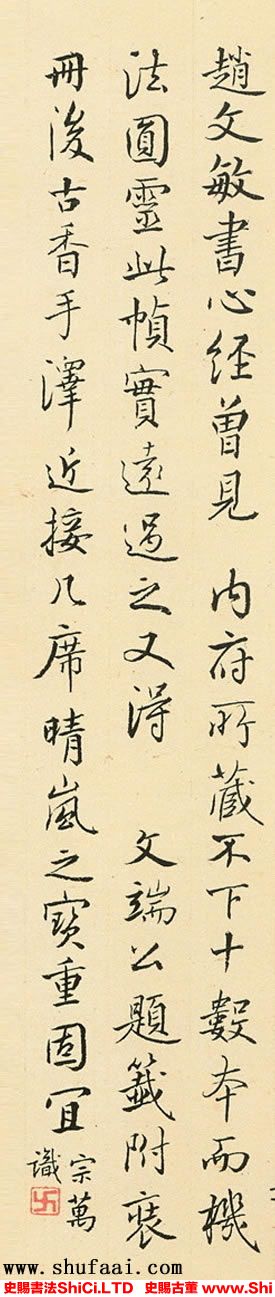 趙文敏書心經曾見 内府所藏不下十數本而機
法圓靈此幀實遠過之又得 文端公題籤附裝
冊後古香手澤近接几席晴嵐之寶重固宜
宗萬
識
卍
www.shufaai.com
史賜書法ShiCi.LTD 史賜古董 www.36og.com